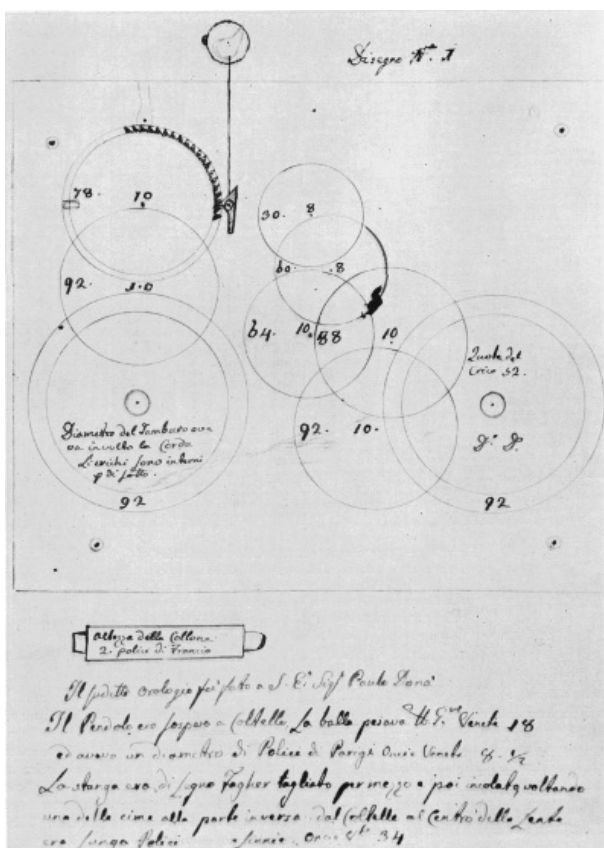 Disegno N.º 1
78. 10
30. 8
60. 8
92. 10
64. 10 88 10
Ruota del
Crico 52.
Diametro del Tamburo ove
va involto la Corda
Li crichi sono interni
p di sotto.
92. 10.
92
92
Altezza della Collona
2. police di Francia
Il suditto orologio fei fato a S. E. Sigʳ Paulo Donà
Il Pendolo era sospeso a Coltello, La balla pesava Venete 18
ed aveva un diametro di Police di Parigi Oncie Venete 8. ½
La stanga era di Legno Fagher tagliato per mezzo e poi incolata voltando
una delle cime alla parte inversa. dal Coltello al Centro della Lente
era lunga Polici Oncie 34